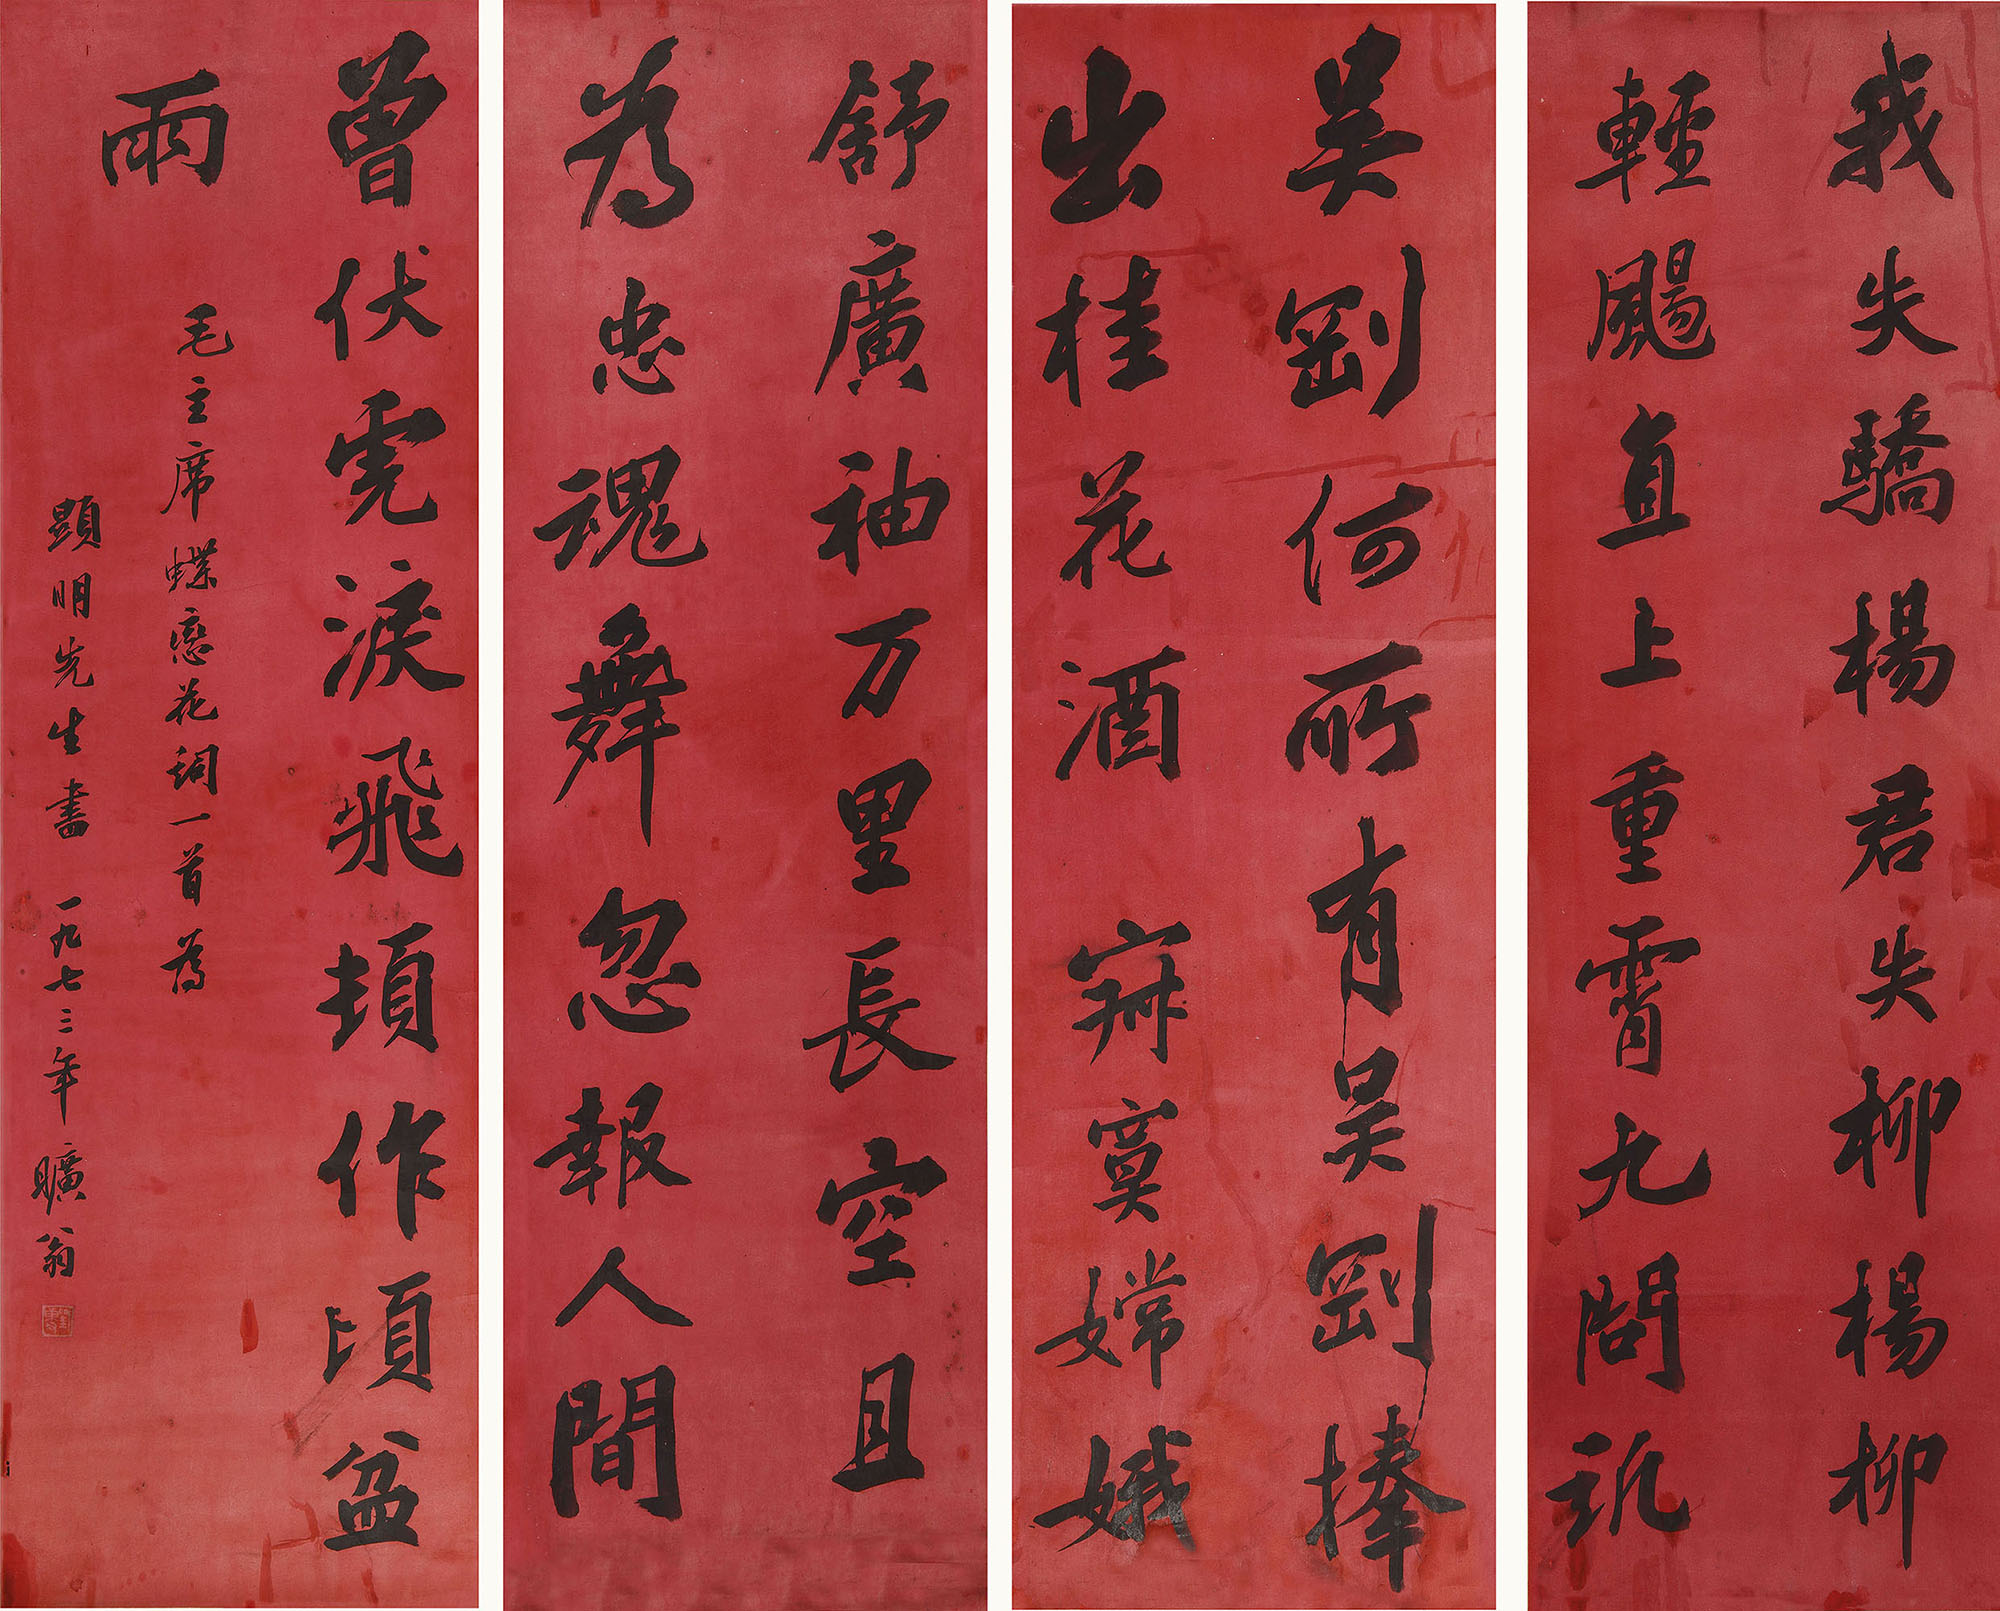 我失驕楊君失柳楊柳
輕颺直上重霄九問訊
吳剛何所有吳剛捧
出桂花酒 寂寞嫦娥
舒廣袖万里長空且
為忠魂舞忽報人間
曾伏虎淚飛頓作頃盆
雨
毛主席蝶戀花詞一首為
顕明先生書 一九七三年 曠翁